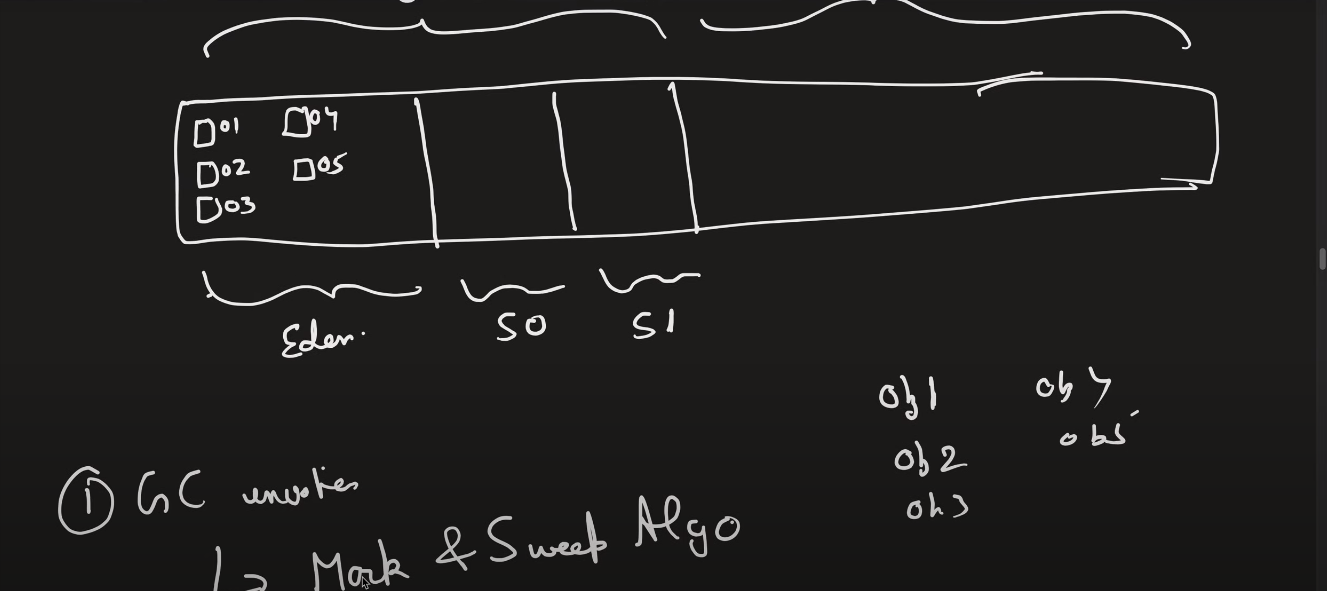 o1 o4
o2 o5
o3
Eden.
S0 S1
obj1
ob2
ob3
ob5
① GC invokes
↳ Mark & Sweep Algo